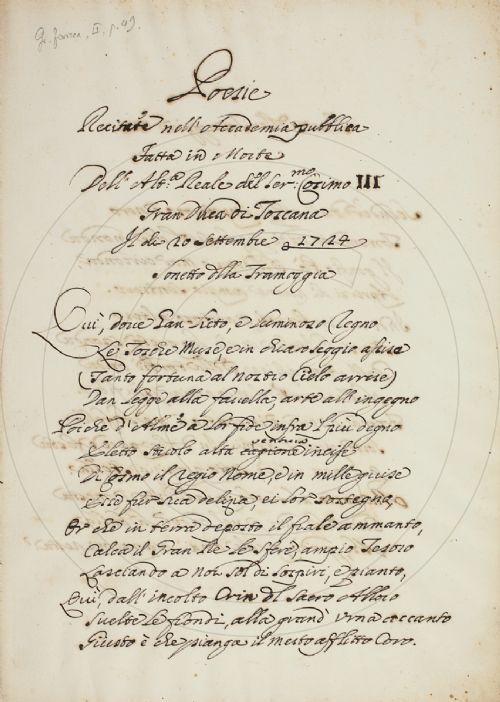 Poesie
Recitate nell'Accademia pubblica
Fatta in Morte
Dell'Alt.ª Reale del Ser.mo Cosimo III
Gran Duca di Toscana
Il dì 20 Settembre 1724
Sonetto alla Tramoggia
Qui, dove han lieto, e luminoso Regno
Le Tosche Muse, e in chiaro seggio assise
(Tanto fortuna al nostro Cielo arrise)
Dan legge alla favella, arte all'ingegno
Poiche d'Alme a lor fide infra l'più degno
Eletto stuolo alta cagione incise
ventura
Di Cosmo il Regio Nome, e in mille guise
ei lor sostegno,
Or che in terra deposto il frale ammanto,
Calca il Gran Rè le sfere, ampio Tesoro
Lasciando a Noi sol di sospiri, e pianto,
Qui, dall'incolto Crin del Sacro Alloro
Svelte le frondi, alla grand'Urna accanto
Giusto è che pianga il mesto afflitto Coro.